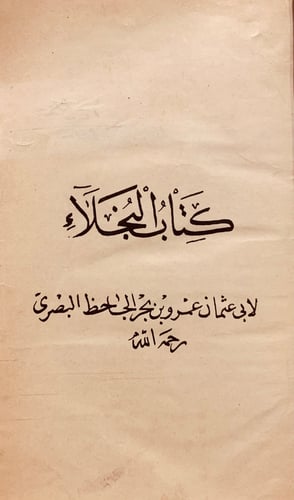 كِتَابُ الْبُخَلَآءِ
لابى عثمان عمرو بن بحر الجاحظ البصرى
رحمه الله